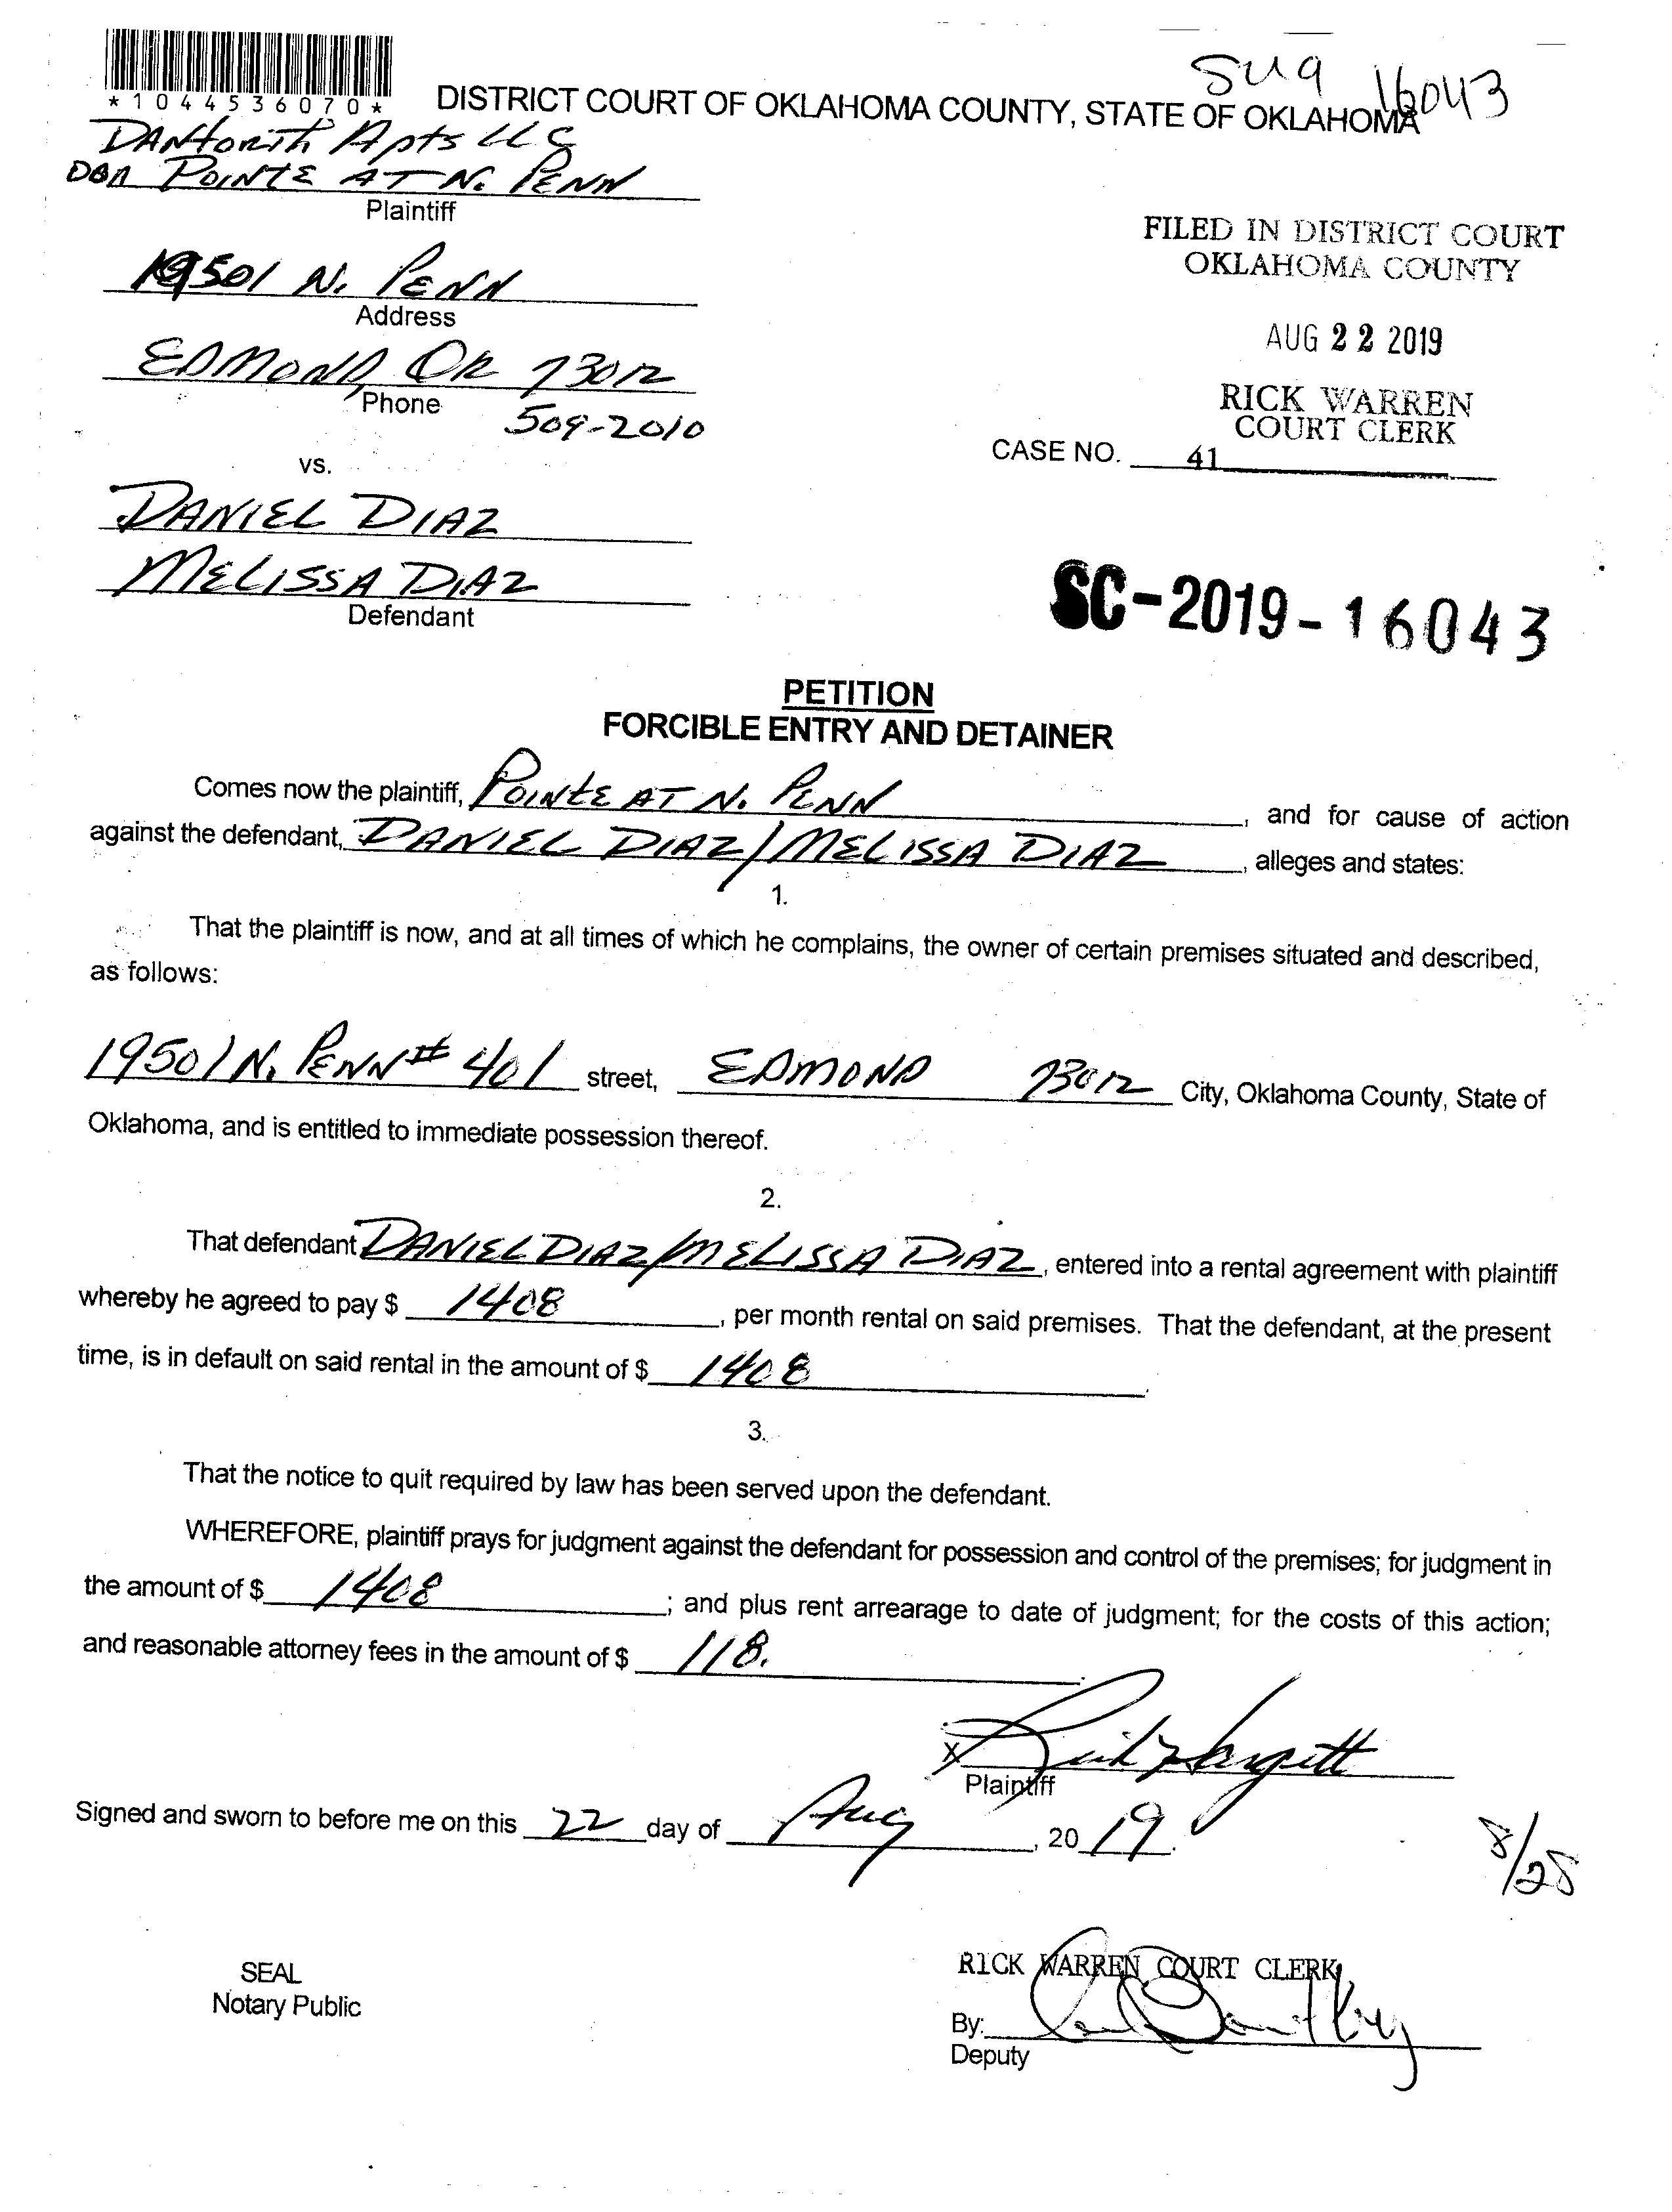 *1044536070*
SU9 16043
DISTRICT COURT OF OKLAHOMA COUNTY, STATE OF OKLAHOMA
DANforth Apts LLC
DBA POINTE AT N. PENN
Plaintiff
19501 N. PENN
Address
EDMOND, OK 73012
Phone
509-2010
FILED IN DISTRICT COURT
OKLAHOMA COUNTY
AUG 22 2019
RICK WARREN
COURT CLERK
CASE NO. 41
vs.
DANIEL DIAZ
MELISSA DIAZ
Defendant
SC-2019-16043
PETITION
FORCIBLE ENTRY AND DETAINER
Comes now the plaintiff, POINTE AT N. PENN, and for cause of action
against the defendant, DANIEL DIAZ/MELISSA DIAZ, alleges and states:
1.
That the plaintiff is now, and at all times of which he complains, the owner of certain premises situated and described,
as follows:
19501 N. PENN # 401 street, EDMOND 73012 City, Oklahoma County, State of
Oklahoma, and is entitled to immediate possession thereof.
2.
That defendant DANIEL DIAZ/MELISSA DIAZ, entered into a rental agreement with plaintiff
whereby he agreed to pay $ 1408, per month rental on said premises. That the defendant, at the present
time, is in default on said rental in the amount of $ 1408.
3.
That the notice to quit required by law has been served upon the defendant.
WHEREFORE, plaintiff prays for judgment against the defendant for possession and control of the premises; for judgment in
the amount of $ 1408; and plus rent arrearage to date of judgment; for the costs of this action;
and reasonable attorney fees in the amount of $ 118.
X
Plaintiff
Signed and sworn to before me on this 22 day of Aug, 20 19.
8/28
SEAL
Notary Public
RICK WARREN COURT CLERK
By:
Deputy